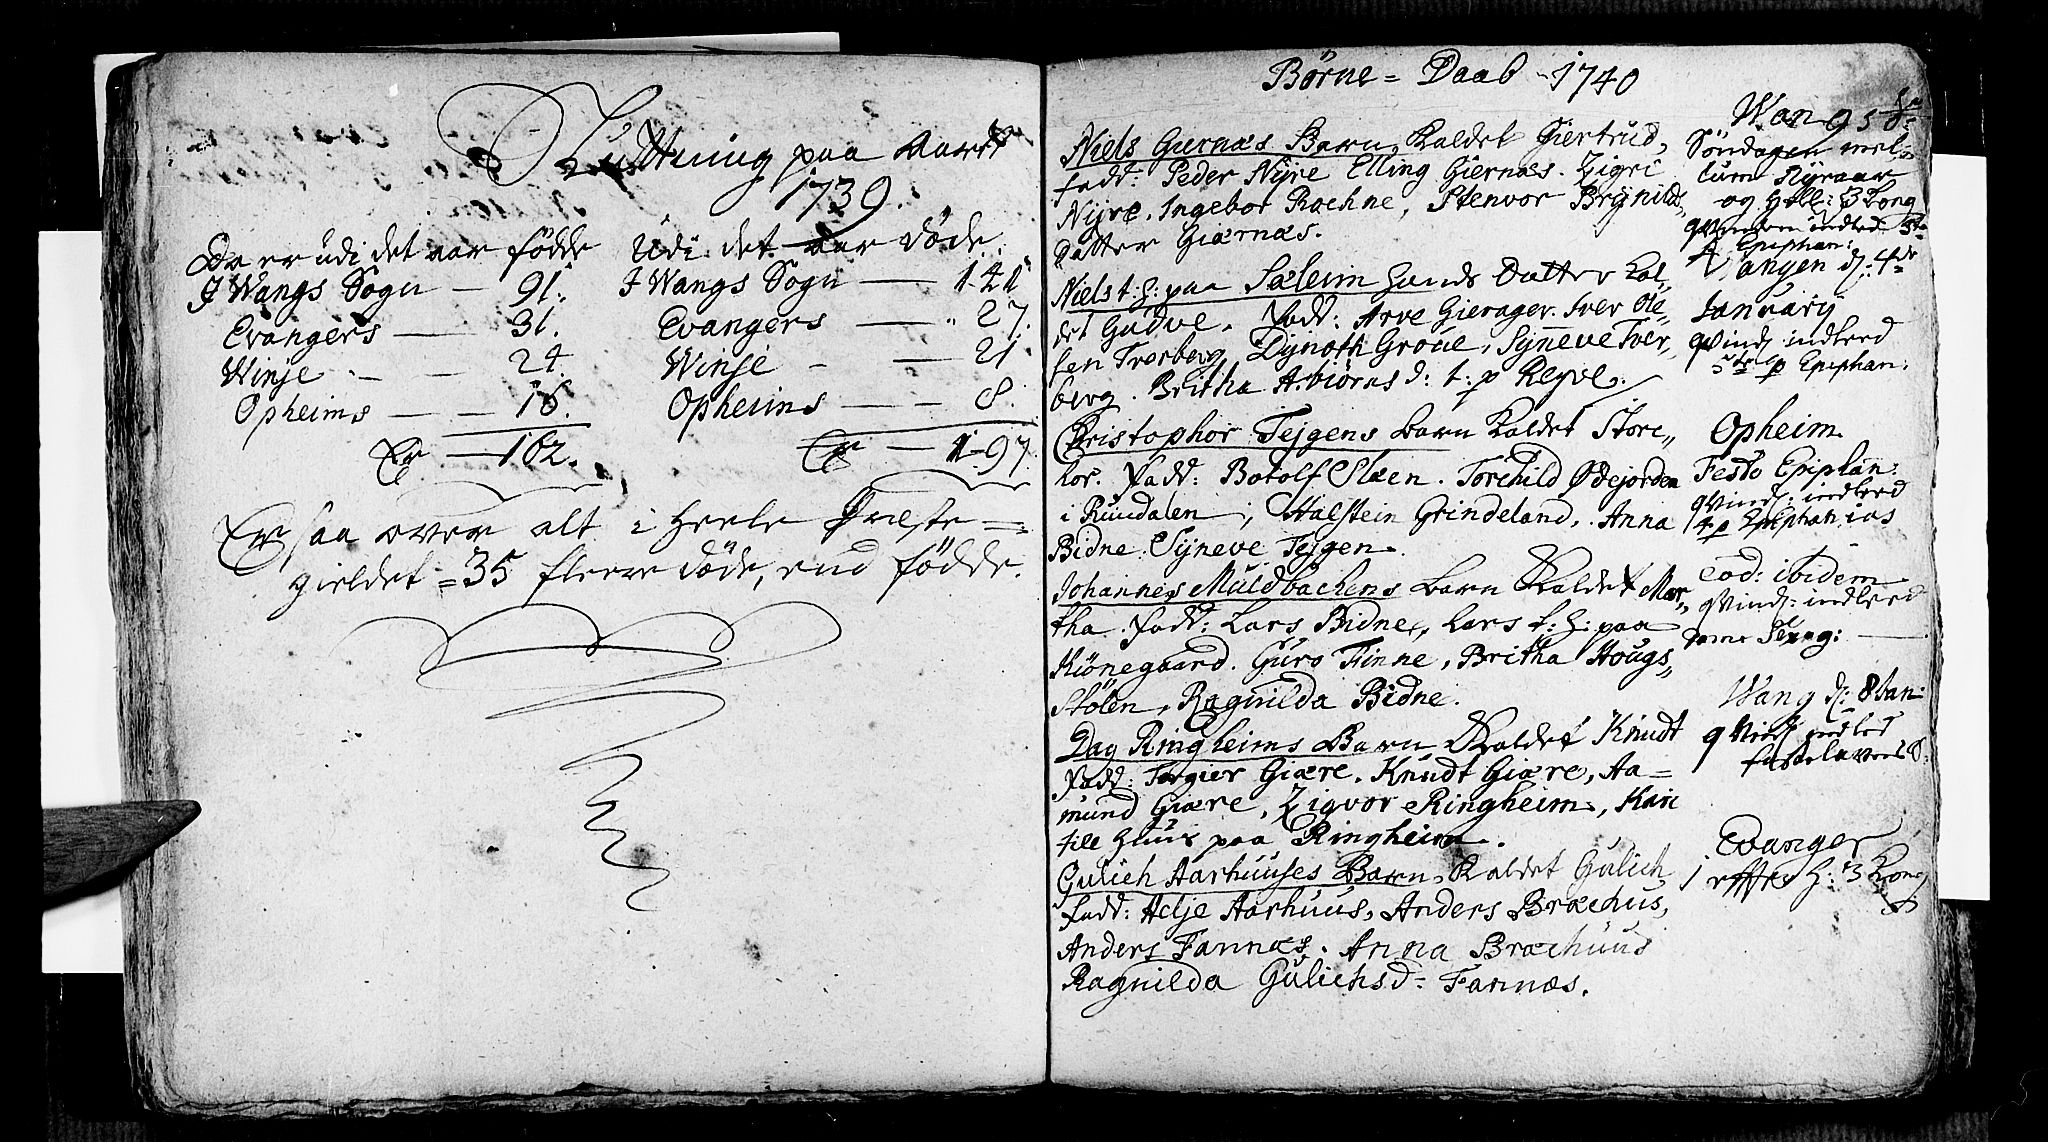 Sluttning paa Aaret
1739
Da er udi det aar födde
J Wangs Sogn — 91.
Evangers — 31.
Winje — 24.
Opheims — 16.
Er — 162.
Udi det aar döde.
J Wangs Sogn — 141
Evangers — 27.
Winje — 21
Opheims — 8.
Er — 197
Er saa over alt i heele Præste=
gieldet = 35 fleere döde, end födde.
Börne = Daab 1740
Niels Giernæs Barn, Kaldet Giertrud,
fadd: Peder Nyre Elling Giernæs. Zigri
Nyre, Ingebor Rochne, Stenvor Brynilds
datter Giærnæs.
Niels t: H: paa Sæleim hands Datter Kal,,
det Gudve. Fadd: Arve Gierager. Iver Ole,,
sen Tverberg, Dynoth Gröue, Synneve Tver,,
berg. Britha Asbiörns d: t: p Reqve.
Christophor Tejgens Barn Kaldet Store,,
Kor. Fadd: Botolf Slæen. Torchild Ødejorden
i Rundalen, Halstein Grindeland, Anna
Bidne. Syneve Tejgen.
Johannes Muldbachens Barn Kaldet Mar,,
tha. Fadd: Lars Bidne, Lars t: H: paa
Kiönegaard. Guro Finne, Britha Hougs,,
Stölen, Ragnilda Bidne.
Dag Ringheims Barn Kaldet Knudt
Fadd: Torgier Giære. Knudt Giære, Aa=
mund Giære, Zigvor Ringheim, Kari
till Huus paa Ringheim.
Gulich Aarhuuses Barn, Kaldet Gulich
fadd: Aelje Aarhuus, Anders Bræchus,
Anders Fannæs. Anna Bræchuus
Ragnilda Gulichsd: Fannæs.
Wang
Söndagen mel=
lum Nyeaar
og Hell: 3 Kong
qvinden indled 3tia
p Epiphan:
Wangen d: 4de
Januarij
qvind: indleed
p Epiphan:
Opheim
Festo Epiphan:
qvind: indleed
4 p Epiphanias
Eod: ibidem
qvind: indleed
samme
Wang d: 8 Jan:
qvind: indled
fastelavens
Evanger
effter H: 3 Kong